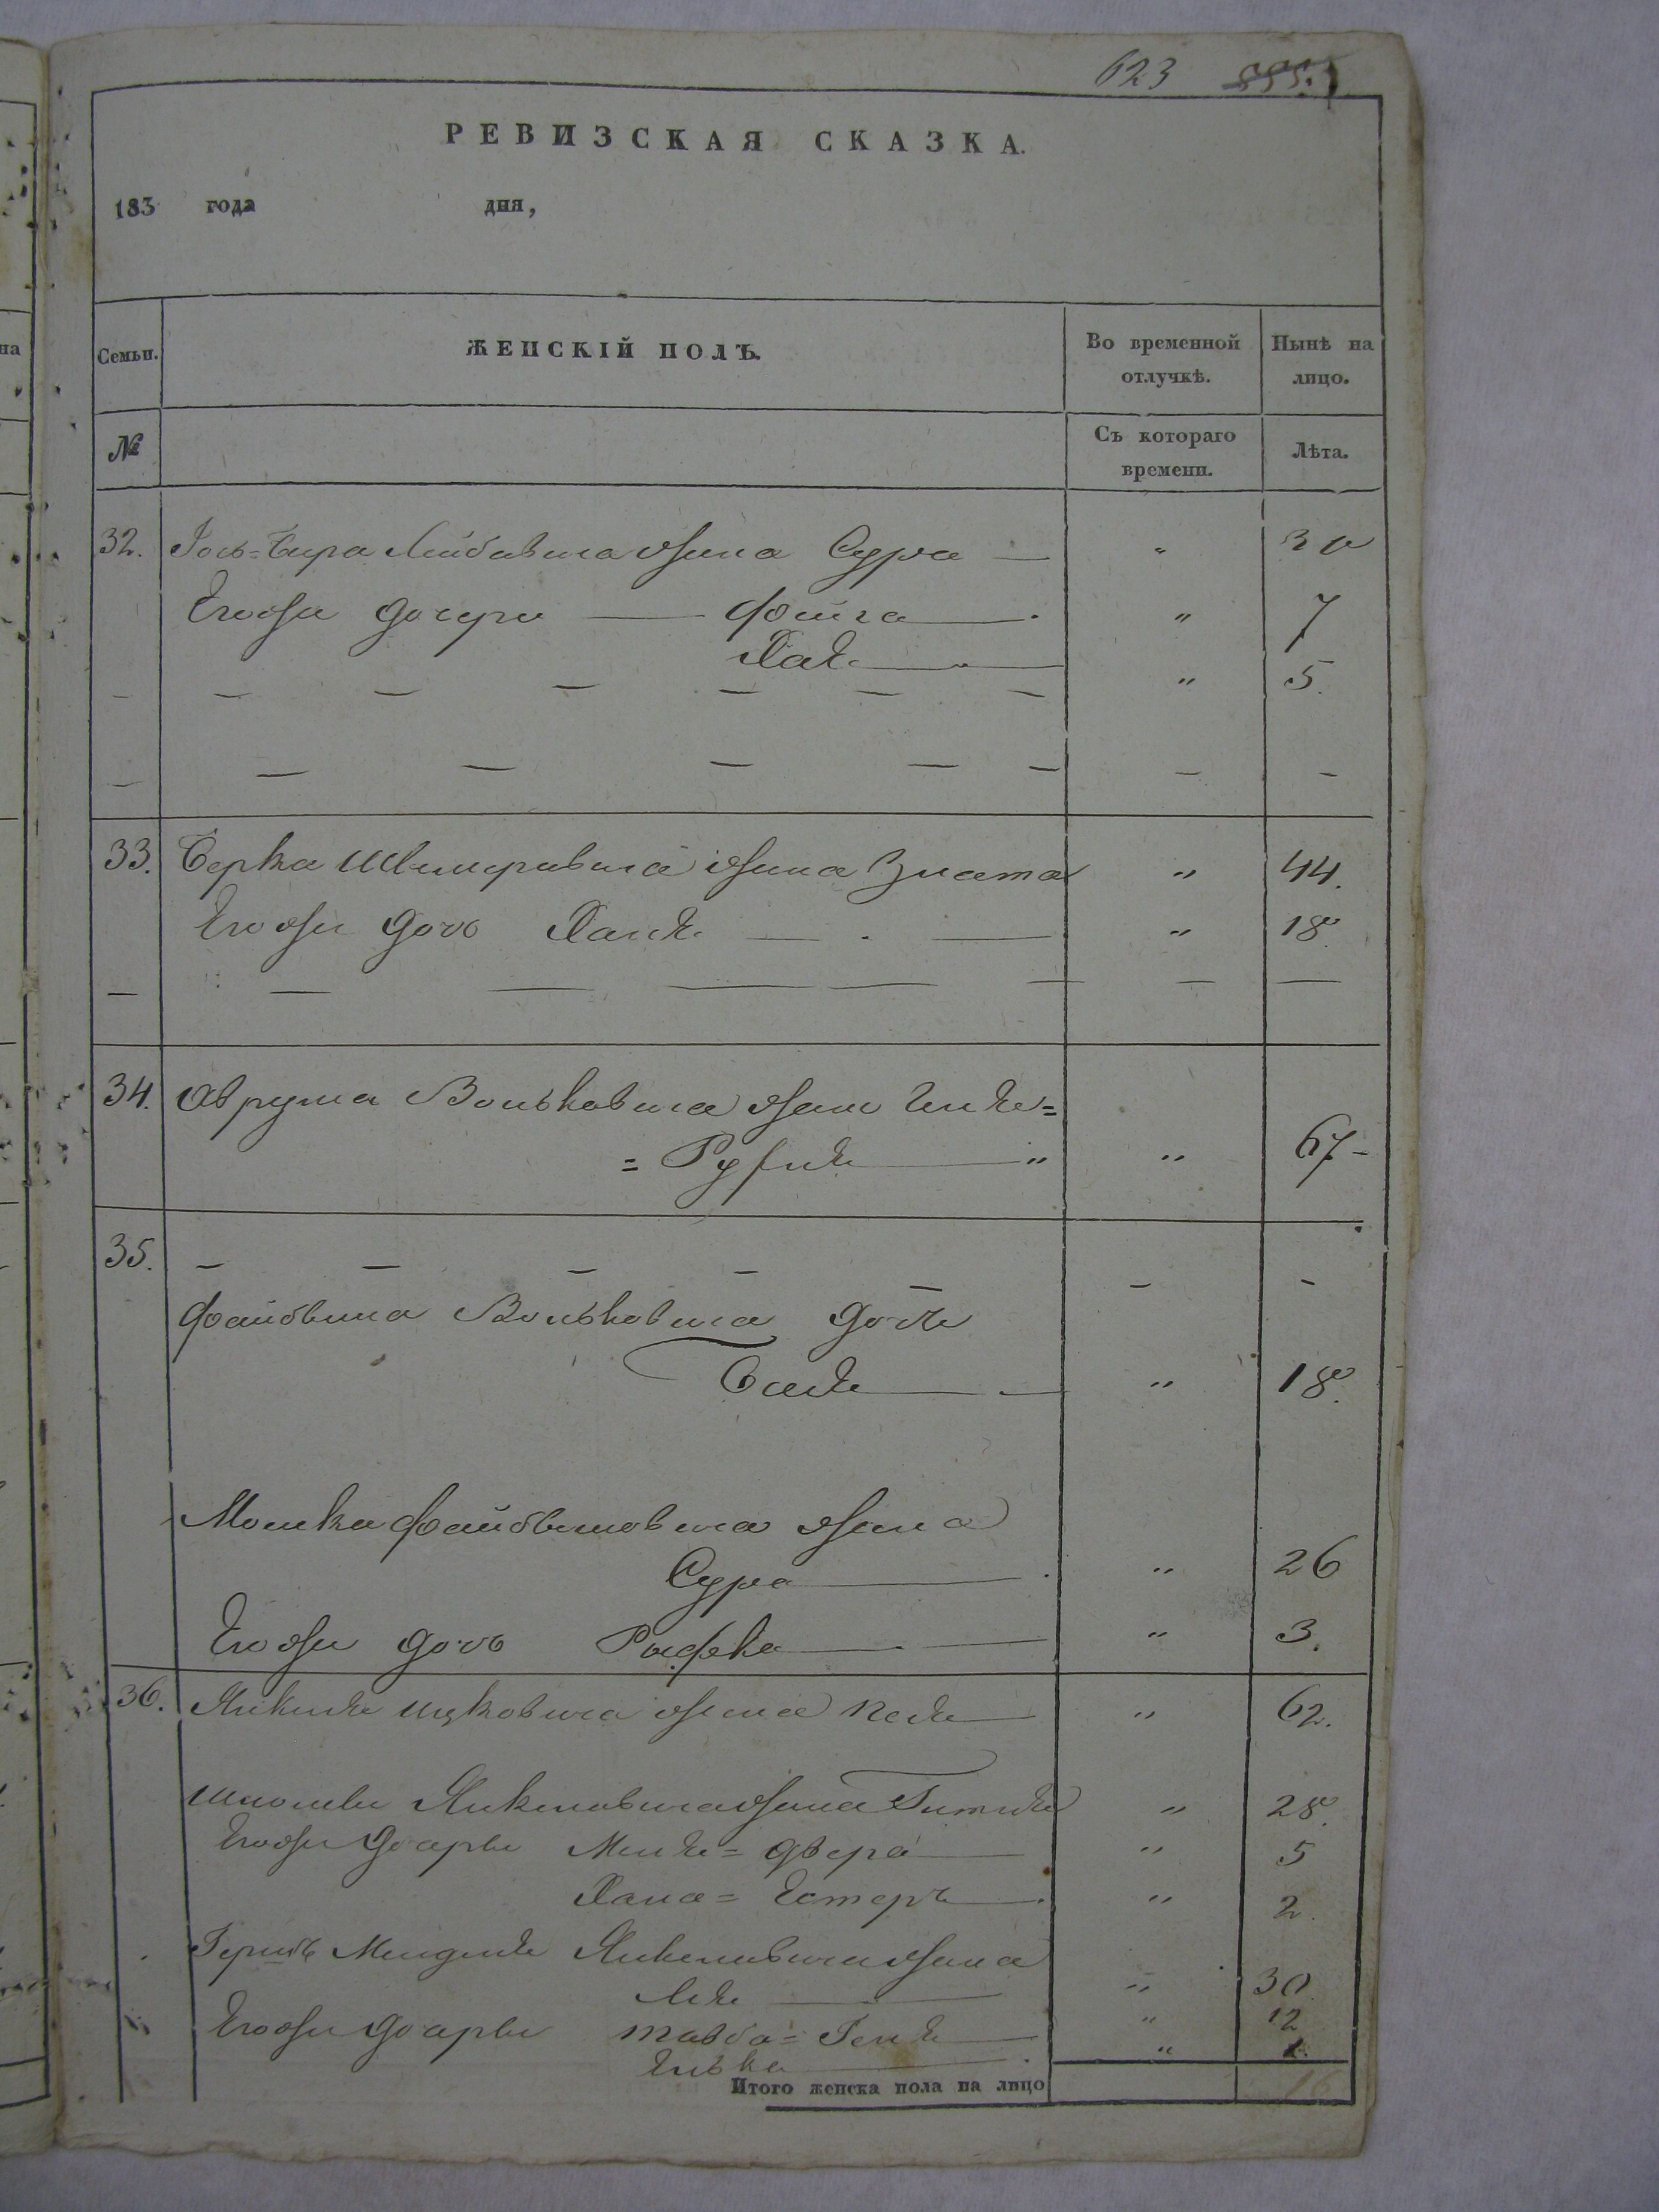 623
РЕВИЗСКАЯ СКАЗКА.
183 года дня,
Семьи. ЖЕНСКІЙ ПОЛЪ. Во временной отлучкѣ. Нынѣ на лицо.
№ Съ котораго времени. Лѣта.
32. Лейбовича жена Сура — " 30
Егоже дочери — Фейга — " 7
Хая — " 5.
33. Берка Шмеровича жена Злата " 44.
Егоже дочь Хая — " 18.
34. Аврума Вольковича жена
= — " " 67 —
35. — — — — — — —
Файбиша Вольковича дочь
Бася — " 18.
Мошка Файбишовича жена
Сура — " 26
Егоже дочь Рыфка — " 3.
36. Янкеля Ицковича жена — " 62.
Шлиомы Янкеловича жена " 28.
Егоже дочери = Двера — " 5
Хана = Естеръ — " 2.
Гершъ Менделя Янкеловича жена
Лея — " 30
Егоже дочери Тавба = — " 12
Элька — " 1.
Итого женска пола на лицо 16